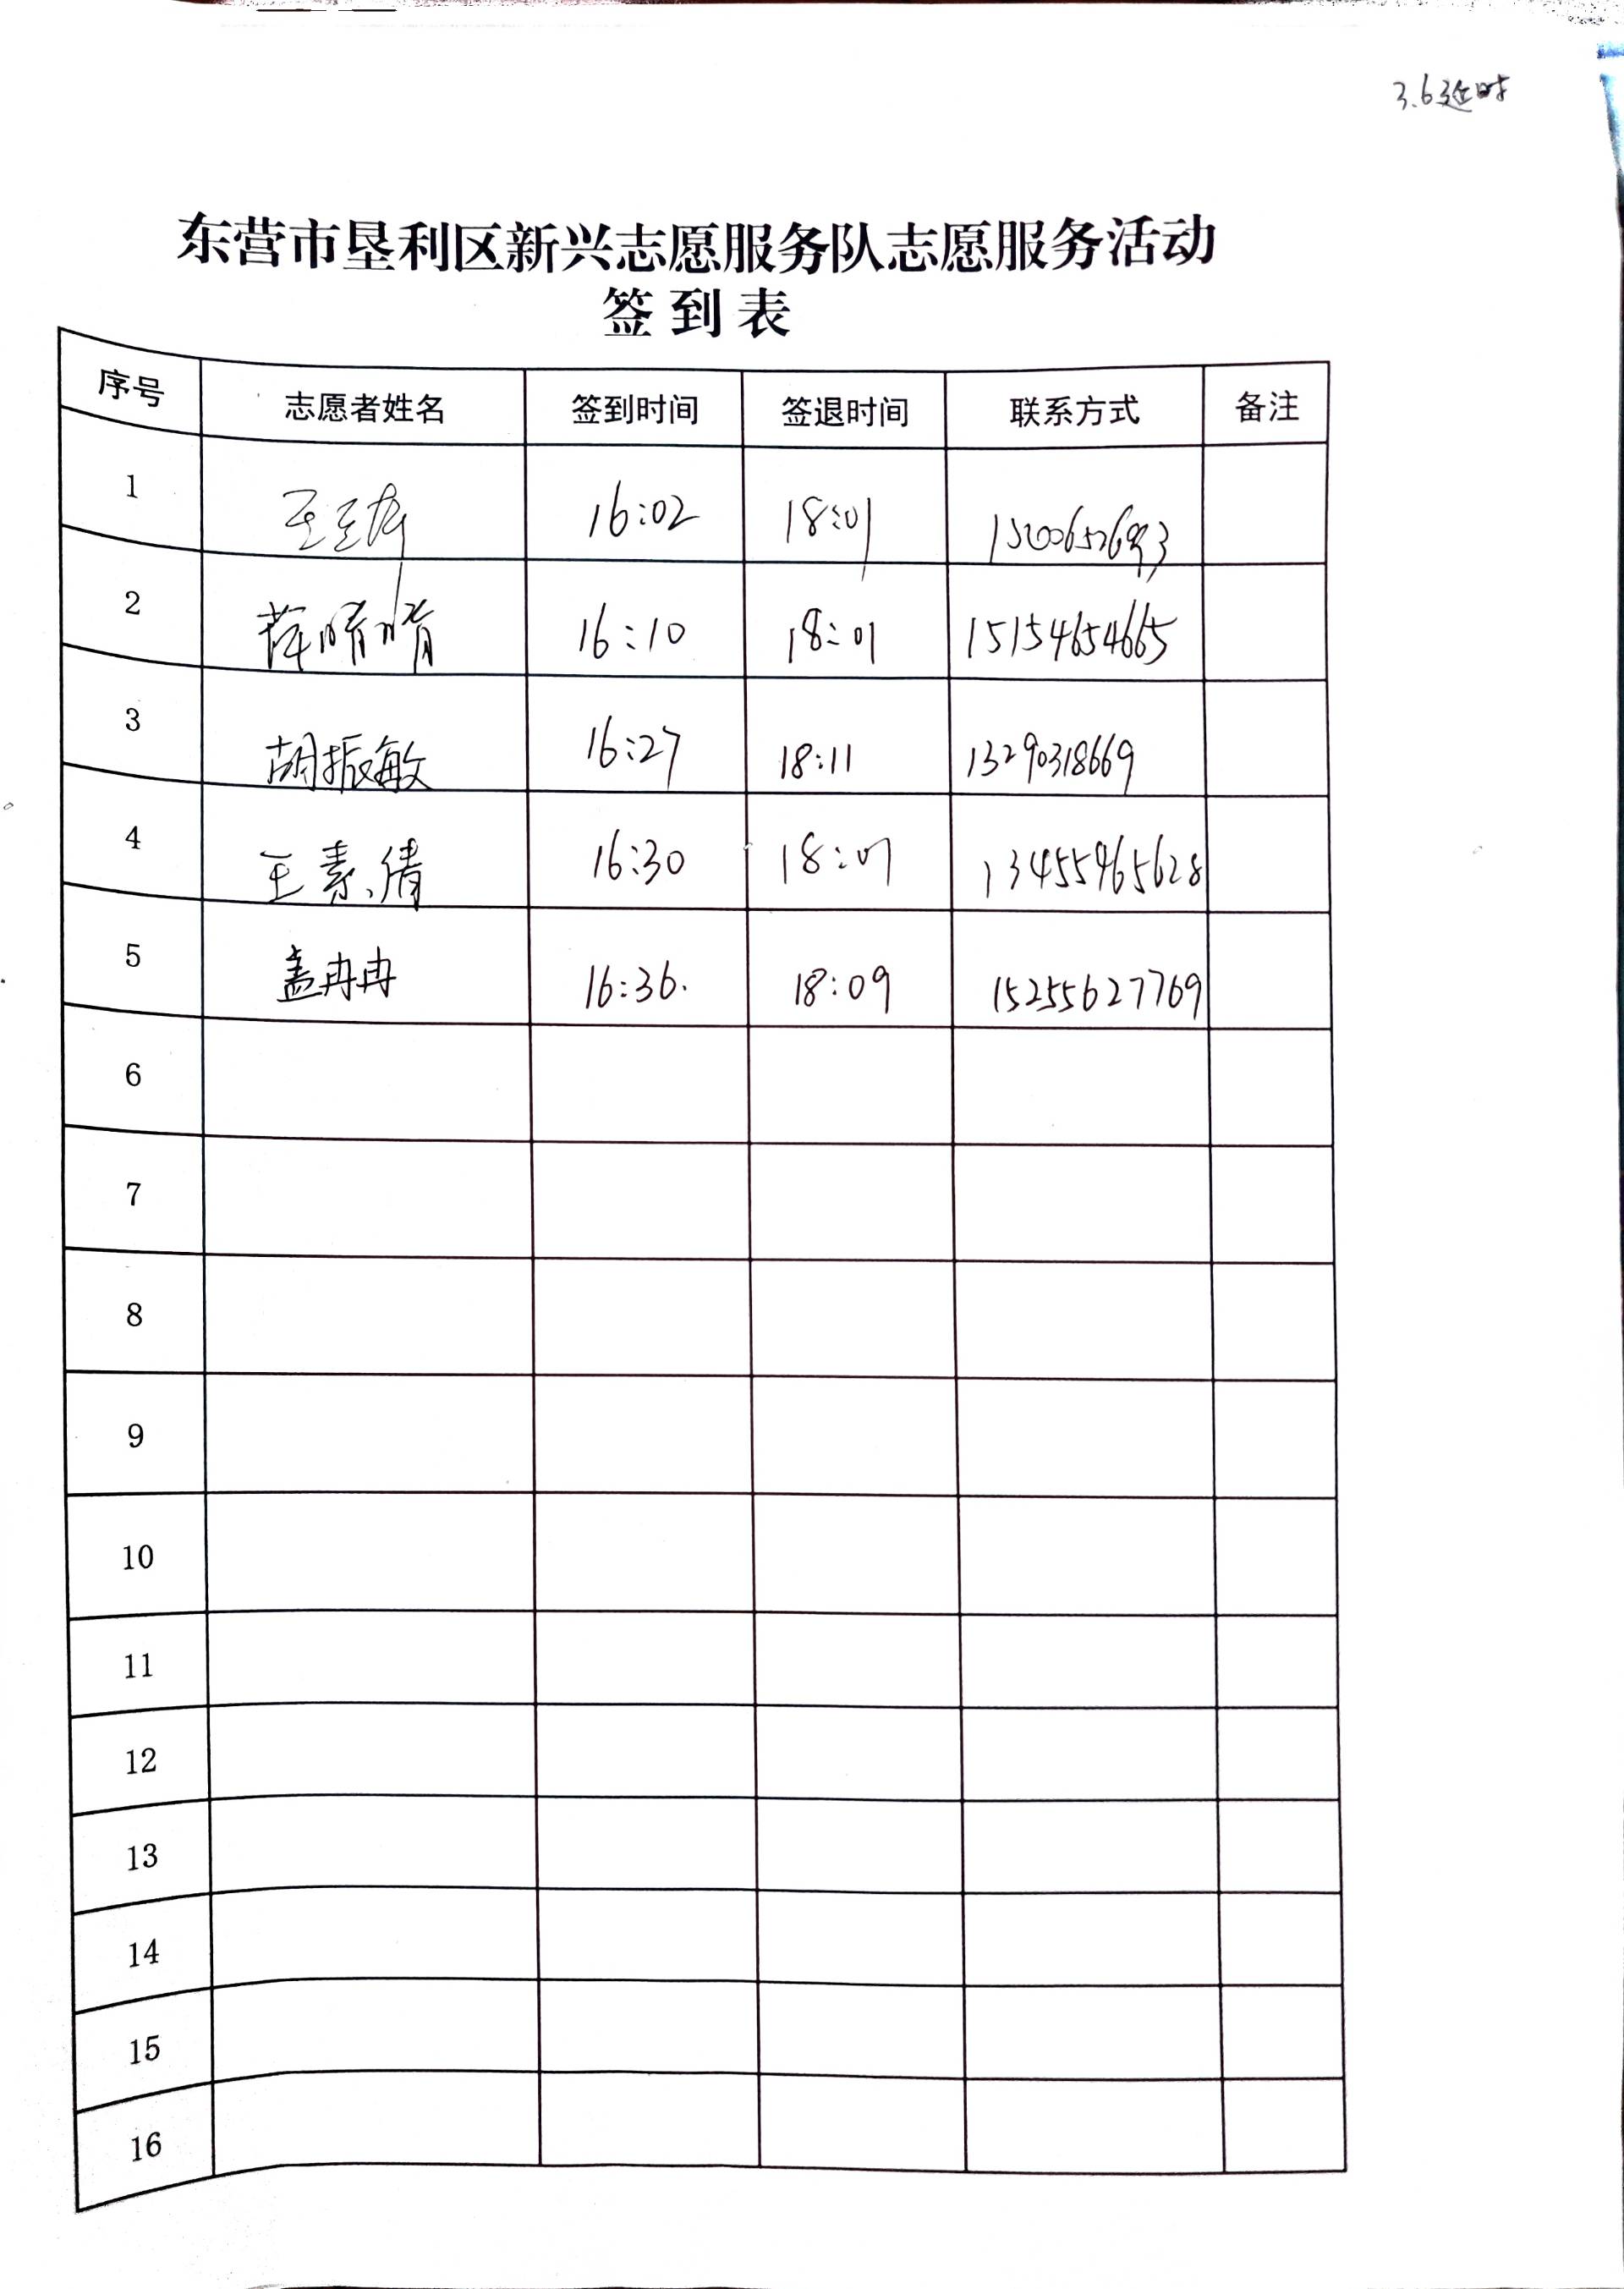 3.6延时
东营市垦利区新兴志愿服务队志愿服务活动
签到表
序号 志愿者姓名 签到时间 签退时间 联系方式 备注
1 16:02 18:01
2 薛晴晴 16:10 18:01 15154654665
3 胡振敏 16:27 18:11 13290318669
4 王素倩 16:30 18:01 13455965628
5 盖冉冉 16:36. 18:09 15255627769
6
7
8
9
10
11
12
13
14
15
16